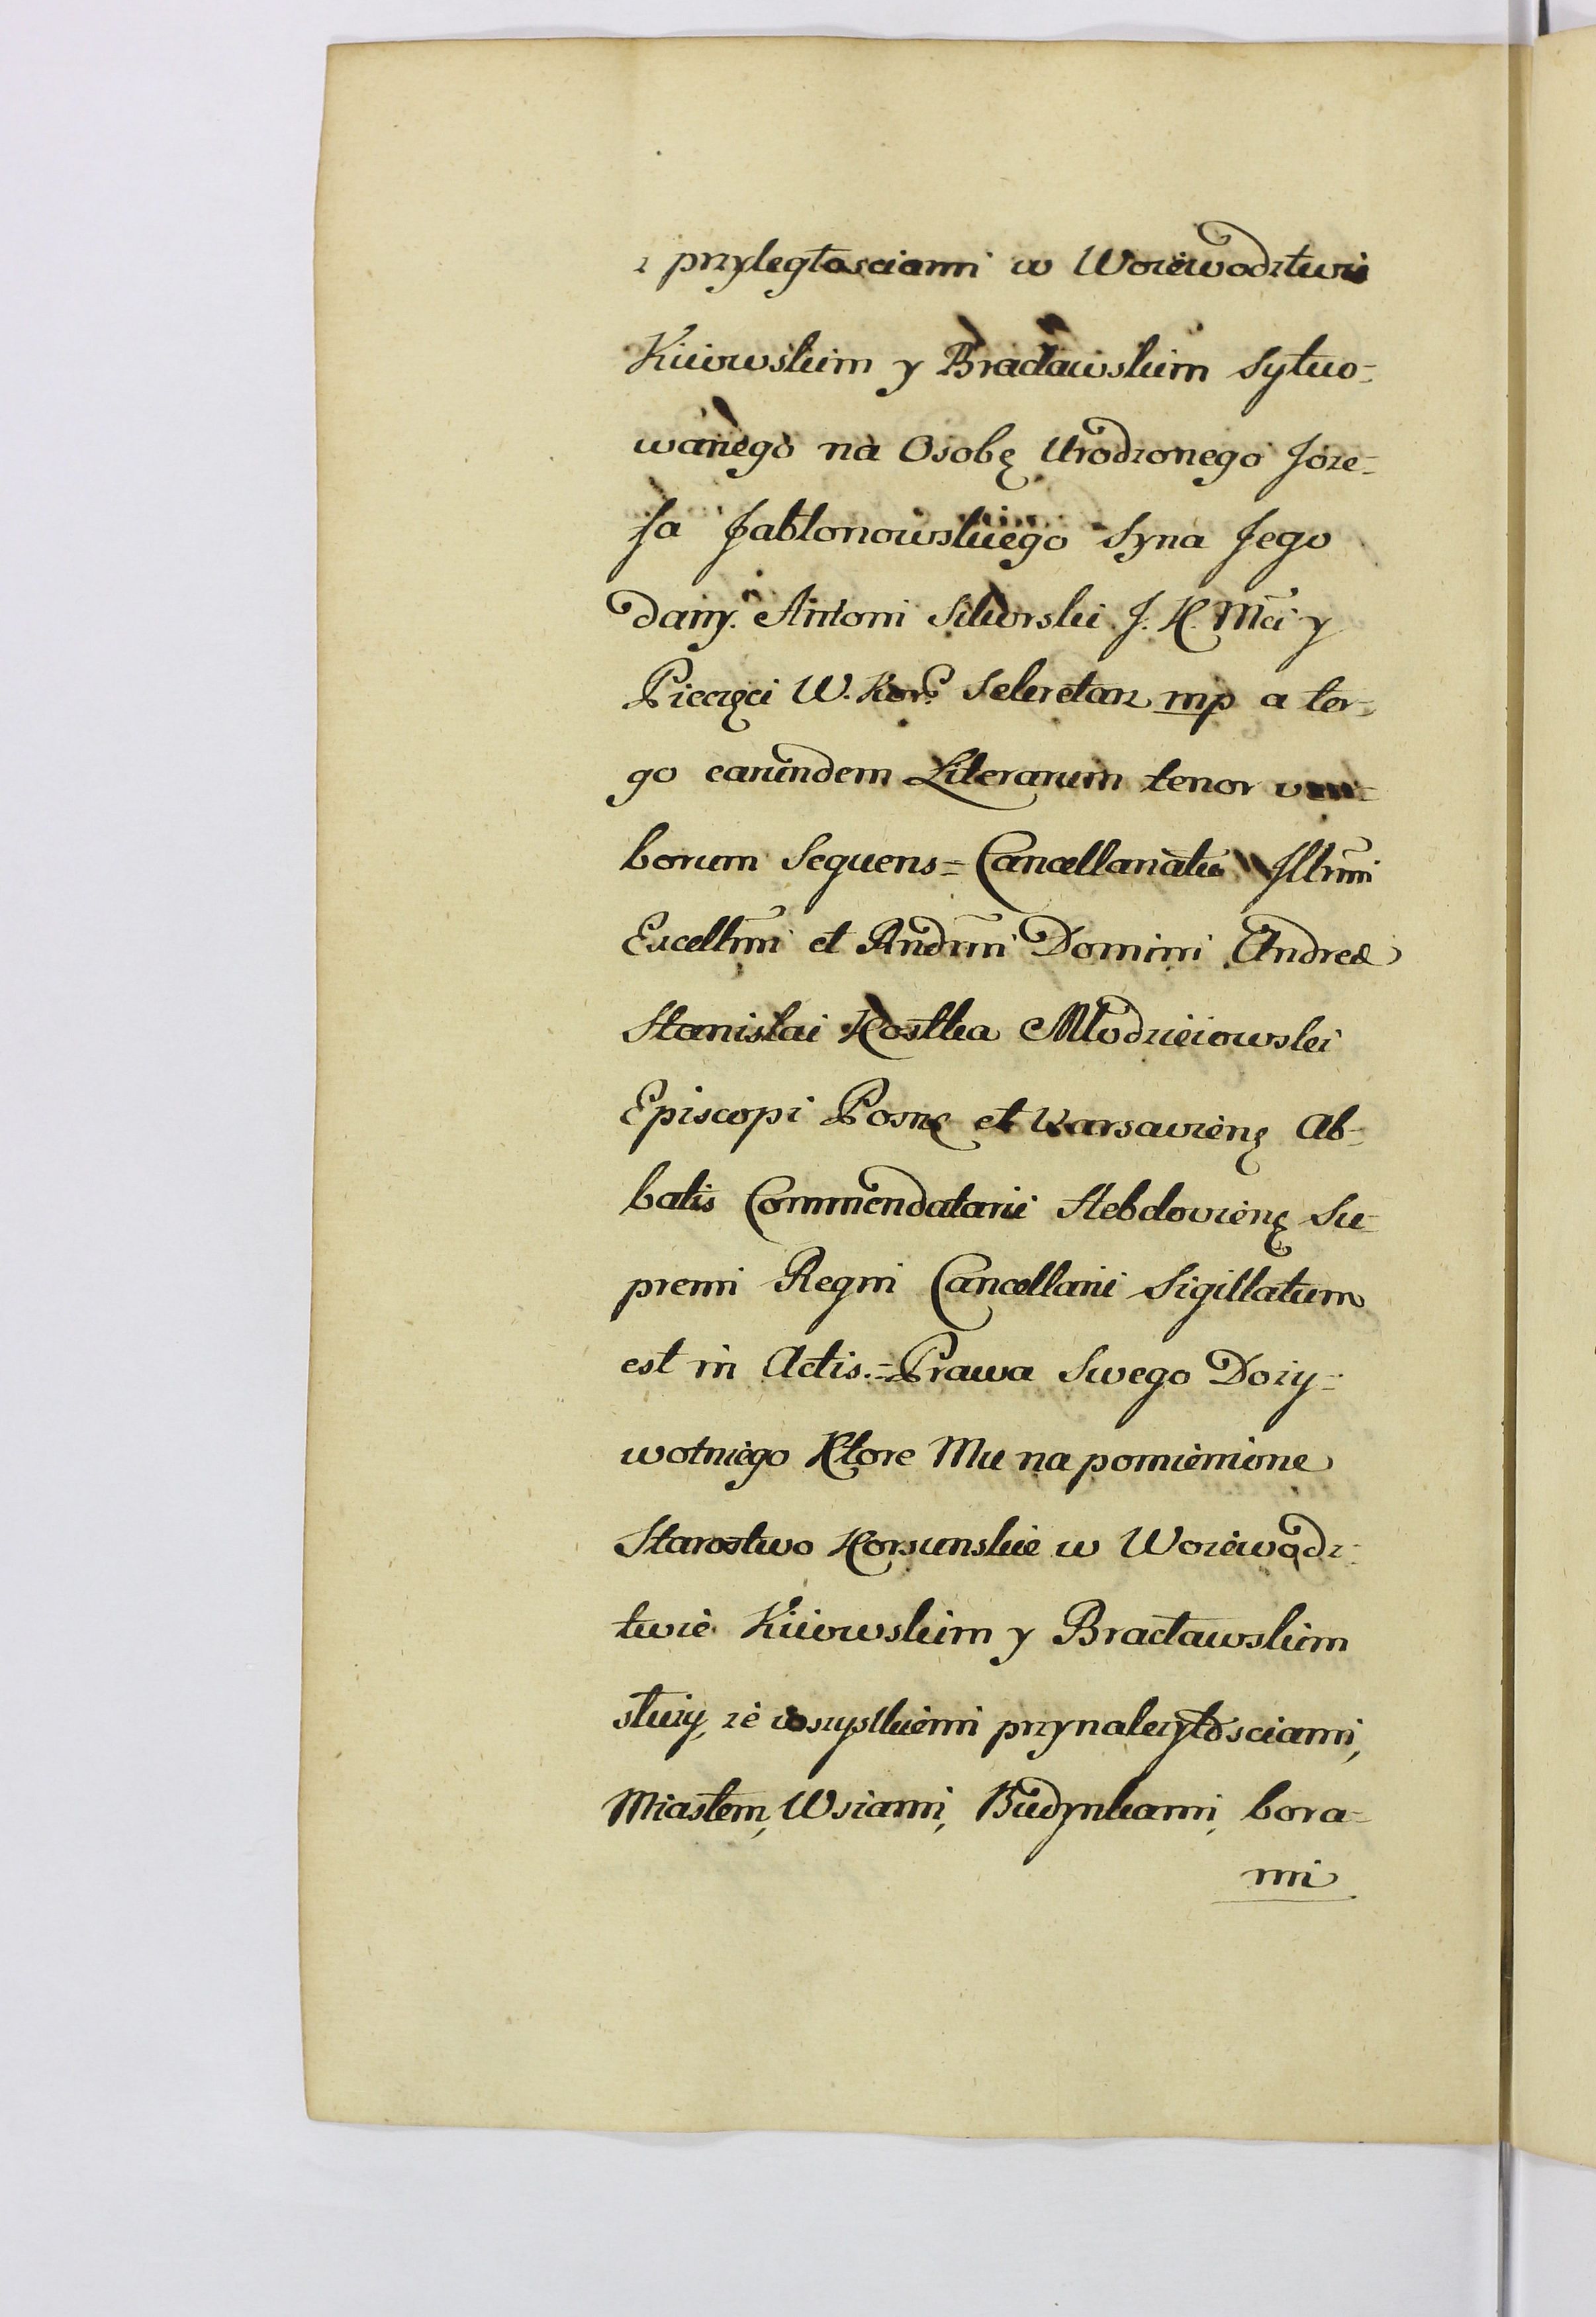 z przyległosciami w Woiewodztwie
Kiiowskim y Bracławskim sytuo=
wanego na Osobę Urodzonego Joze=
fa Jabłonowskiego Syna Jego
dany. Antoni Sikorski J. K. Mci y
Pieczęci W. Kor: Sekretarz mp a ter=
go earundem Literarum tenor ver=
borum Sequens = Cancellariatu Illrmi
Excellmi et Rndmi Domini Andreæ
Stanislai Kostka Młodzieiowski
Episcopi Posnę et Warsavienę Ab=
batis Commendatarii Hebdovienę Su=
premi Regni Cancellarii Sigillatum
est in Actis. = Prawa Swego Dozy=
wotniego Ktore Mu na pomienione
Starostwo Korsunskie w Woiewodz=
twie Kiiowskim y Bracławskim
słuzy, ze wszystkiemi przynalezytosciami,
Miastem, Wsiami, Budynkami, bora=
mi